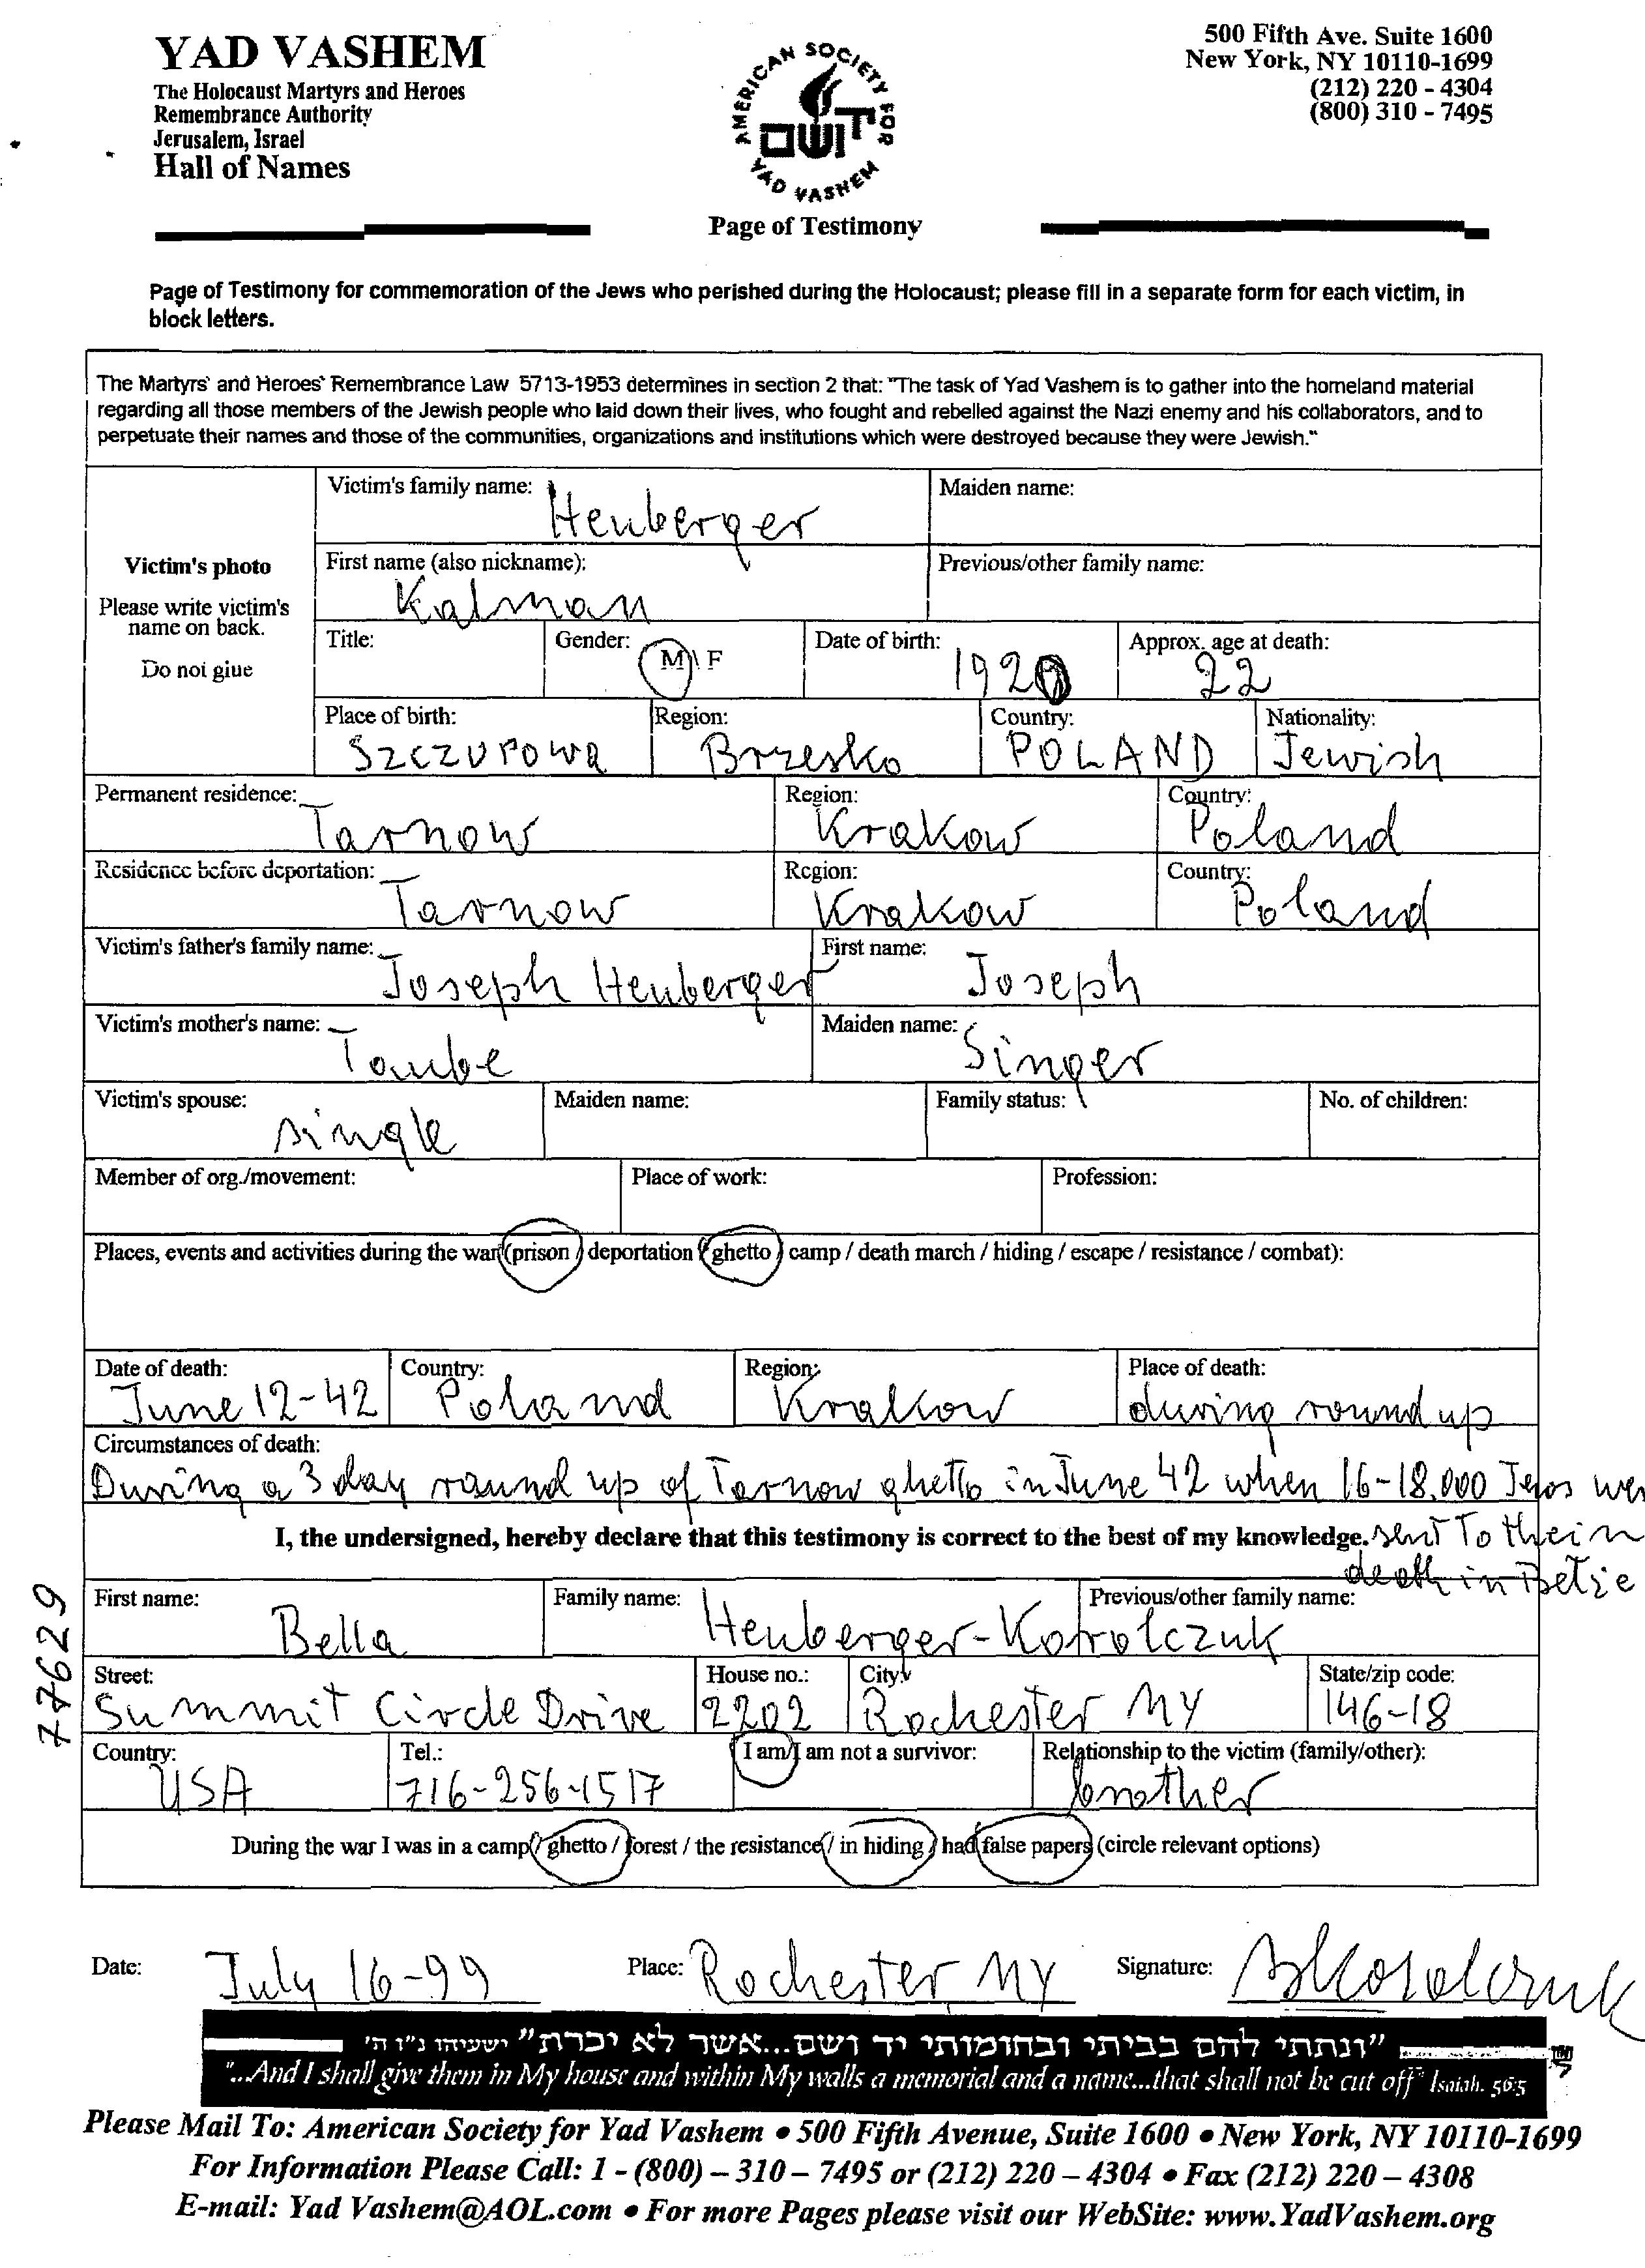 YAD VASHEM
The Holocaust Martyrs and Heroes
Remembrance Authority
Jerusalem, Israel
Hall of Names
AMERICAN SOCIETY FOR
YAD VASHEM
יד ושם
500 Fifth Ave. Suite 1600
New York, NY 10110-1699
(212) 220 - 4304
(800) 310 - 7495
Page of Testimony
Page of Testimony for commemoration of the Jews who perished during the Holocaust; please fill in a separate form for each victim, in
block letters.
The Martyrs' and Heroes' Remembrance Law 5713-1953 determines in section 2 that: "The task of Yad Vashem is to gather into the homeland material
regarding all those members of the Jewish people who laid down their lives, who fought and rebelled against the Nazi enemy and his collaborators, and to
perpetuate their names and those of the communities, organizations and institutions which were destroyed because they were Jewish."
Victim's photo
Please write victim's
name on back.
Do not glue
Victim's family name: Heuberger Maiden name:
First name (also nickname): Kalman Previous/other family name:
Title: Gender: M\F Date of birth: 1920 Approx. age at death: 22
Place of birth: SZCZUROWA Region: Brzesko Country: POLAND Nationality: Jewish
Permanent residence: Tarnow Region: Krakow Country: Poland
Residence before deportation: Tarnow Region: Krakow Country: Poland
Victim's father's family name: Joseph Heuberger First name: Joseph
Victim's mother's name: Taube Maiden name: Singer
Victim's spouse: single Maiden name: Family status: No. of children:
Member of org./movement: Place of work: Profession:
Places, events and activities during the war (prison / deportation / ghetto / camp / death march / hiding / escape / resistance / combat):
Date of death: June 12-42 Country: Poland Region: Krakow Place of death: during round up
Circumstances of death:
During a 3 day round up of Tarnow ghetto in June 42 when 16-18.000 Jews wer
I, the undersigned, hereby declare that this testimony is correct to the best of my knowledge. sent to their
death in Belze
First name: Bella Family name: Heuberger-Korolczuk Previous/other family name:
Street: Summit Circle Drive House no.: 2202 City: Rochester NY State/zip code: 146-18
Country: USA Tel.: 716-256-1517 I am/I am not a survivor: Relationship to the victim (family/other): brother
During the war I was in a camp / ghetto / forest / the resistance / in hiding / had false papers (circle relevant options)
77629
Date: July 16-99 Place: Rochester NY Signature: BHKorolczuk
"ונתתי להם בביתי ובחומותי יד ושם...אשר לא יכרת" ישעיהו נ"ו ה'
"...And I shall give them in My house and within My walls a memorial and a name...that shall not be cut off" Isaiah. 56:5
Please Mail To: American Society for Yad Vashem • 500 Fifth Avenue, Suite 1600 • New York, NY 10110-1699
For Information Please Call: 1 - (800) – 310 – 7495 or (212) 220 – 4304 • Fax (212) 220 – 4308
E-mail: Yad Vashem@AOL.com • For more Pages please visit our WebSite: www.YadVashem.org